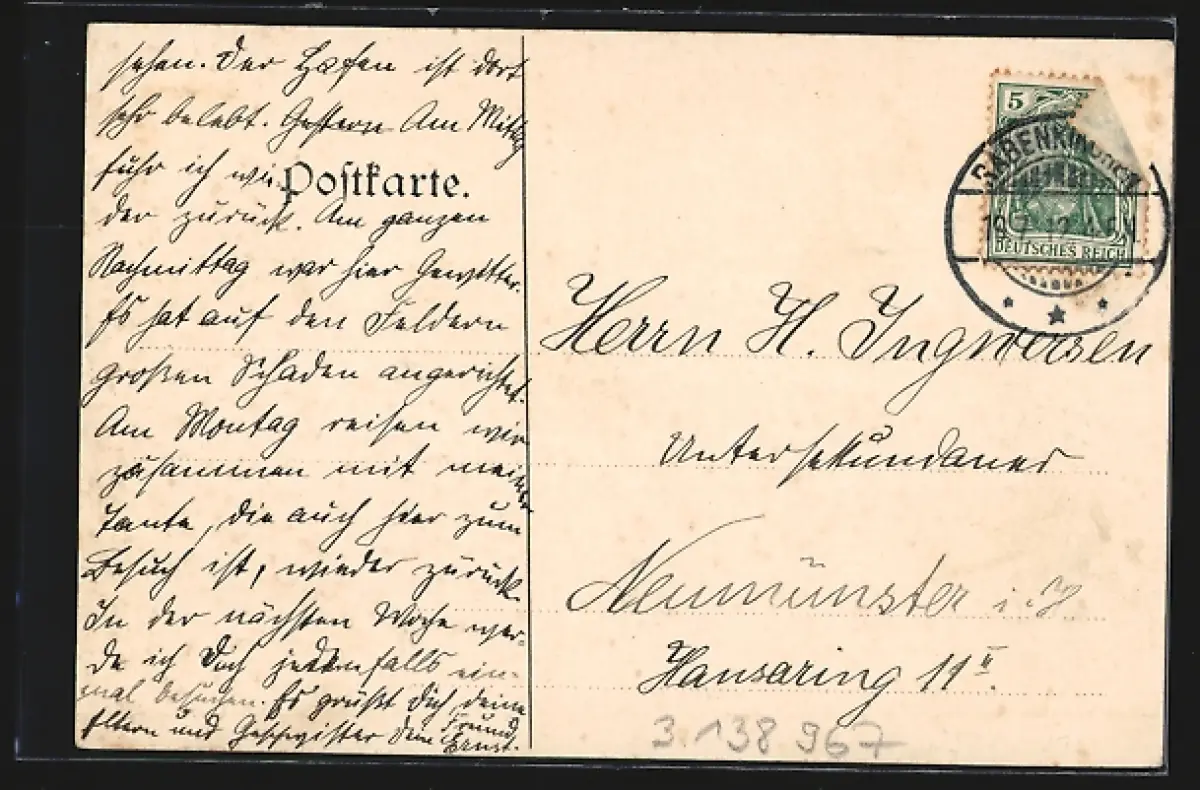 sehen. Der Hafen ist dort
sehr belebt. Gestern Am Mittag
fuhr ich wie-
der zurück. Am ganzen
Nachmittag war hier Gewitter.
Es hat auf den Feldern
großen Schaden angerichtet.
Am Montag reisen wir
zusammen mit meiner
Tante, die auch hier zum
Besuch ist, wieder zurück.
In der nächsten Woche wer-
de ich Dich jedenfalls ein-
mal besuchen. Es grüßt Dich, deine
Eltern und Geschwister Dein Freund
Ernst.
Postkarte.
5
DEUTSCHES REICH
Herrn H. Ingwersen
Untersekundaner
Neumünster i. H.
Hansaring 11 II.
3.138 967